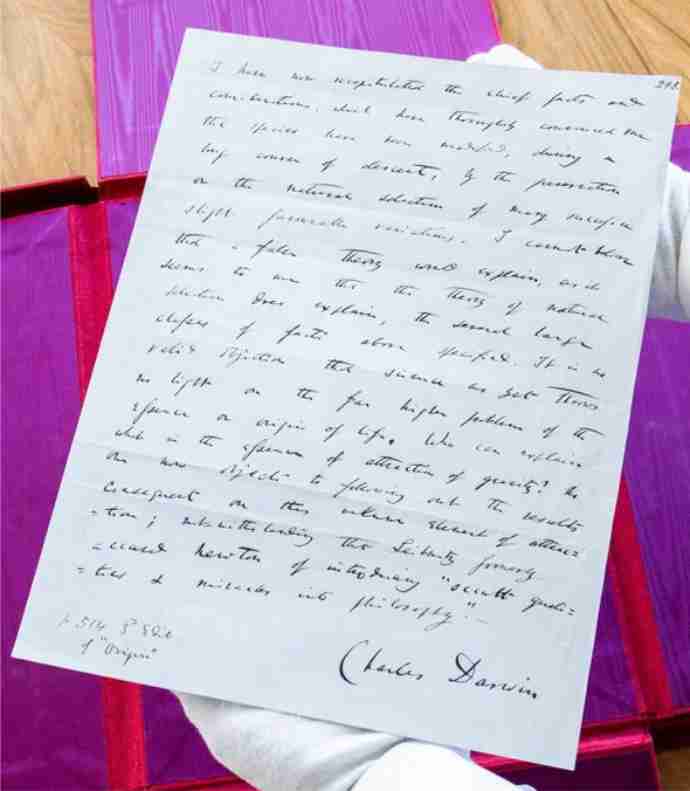 I have now recapitulated the chief facts and
considerations, which have thoroughly convinced me
that species have been modified, during a
long course of descent, by the preservation
or the natural selection of many successive
slight favourable variations. I cannot believe
that a false theory would explain, as it
seems to me that the theory of natural
selection does explain, the several large
classes of facts above specified. It is no
valid objection that science as yet throws
no light on the far higher problem of the
essence or origin of life. Who can explain
what is the essence of attraction of gravity? No
one now objects to following out the results
consequent on this unknown element of attrac
-tion; notwithstanding that Leibnitz formerly
accused Newton of introducing "occult quali-
-ties & miracles into philosophy."—
Charles Darwin
p 514 3d Edit
of "Origin"